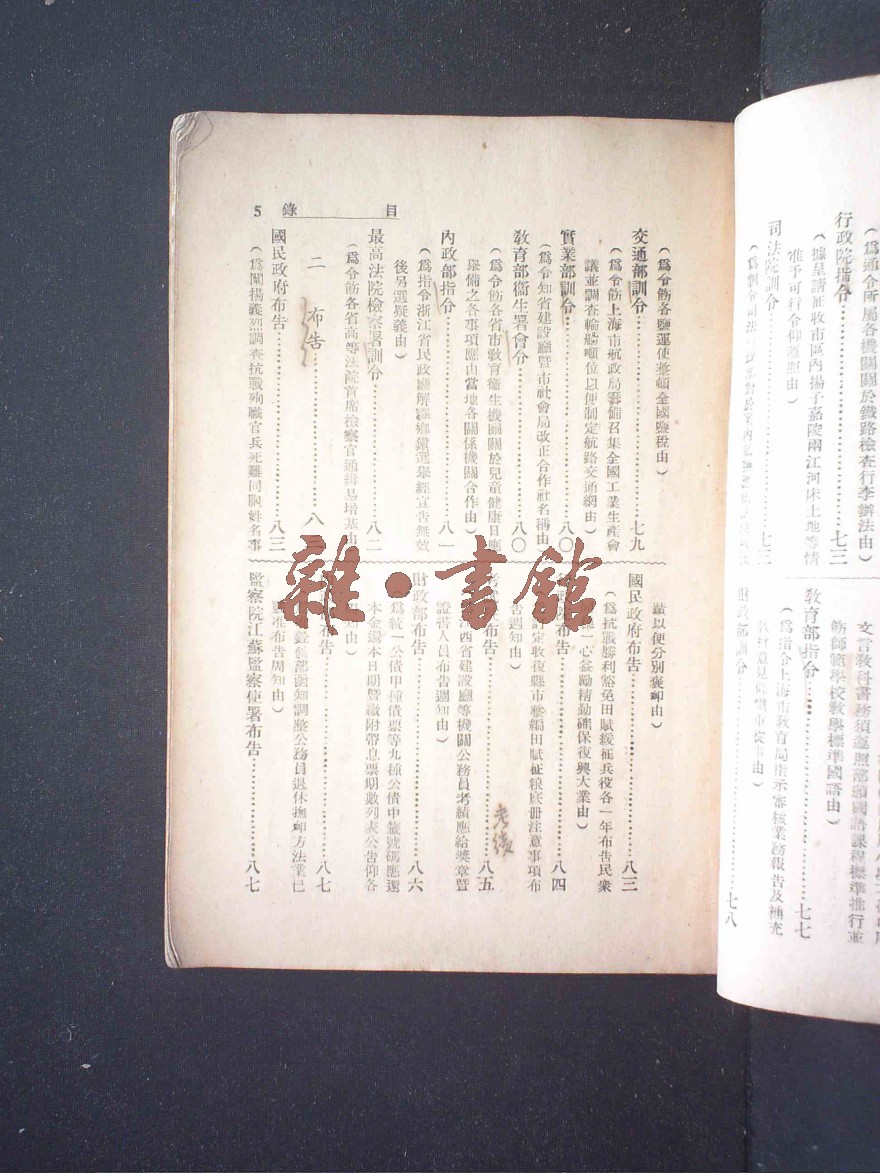 目錄 5
（為令飭各鹽運使整頓全國鹽稅由）
交通部訓令…………七九
（為令飭上海市航政局籌備召集全國工業生產會
議並調查輪船噸位以便制定航路交通網由）
實業部訓令…………八〇
（為令知省建設廳暨市社會局改正合作社名稱由
教育部衛生署會令…………八〇
（為令飭各省市教育衛生機關關於兒童健康日應
舉備之各事項應由當地各關係機關合作由）
內政部指令…………八一
（為指令浙江省民政廳解釋鄉鎮選舉經宣告無效
後另選疑義由）
最高法院檢察署訓令…………八二
（為令飭各省高等法院首席檢察官通緝易培基由
二 布告…………八
國民政府布告…………八三
（為闡揚義烈調查抗戰殉職官兵死難同胞姓名事
蹟以便分別褒卹由）
國民政府布告…………八三
（為抗戰勝利豁免田賦緩征兵役各一年布告民衆
一心益勵精勤確保復興大業由）
布告…………八四
訂定收復縣市整編田賦征粮底冊注意事項布
告週知由）
布告…………八五
西省建設廳等機關公務員考績應給獎章暨
證書人員布告週知由）
考績
財政部布告…………八六
為統一公債甲種債票等九種公債中籤號碼應還
本金還本日期暨繳附帶息票期數列表公告仰各
知由）
布告…………八七
銓敘部函知調整公務員退休撫卹方法業已
更准布告周知由）
監察院江蘇監察使署布告…………八七
（為通令所屬各機關關於鐵路檢查行李辦法由）
行政院指令…………七三
（據呈請征收市區內揚子嘉陵兩江河床土地等情
准予可行令仰遵照由）
司法院訓令…………七三
文言教科書務須遵照部頒國語課程標準推行並
飭師範學校教學標準國語由）
教育部指令…………七七
（為指令上海市教育局指示審核業務報告及補充
由）
財政部訓令…………七八
雜·書館